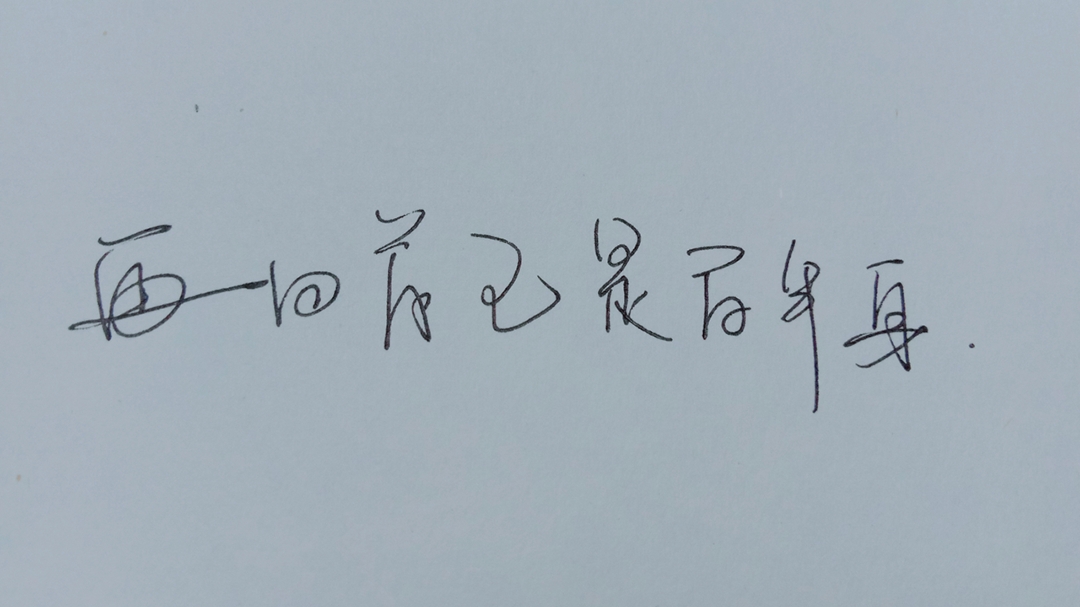 再回首已是百年身.